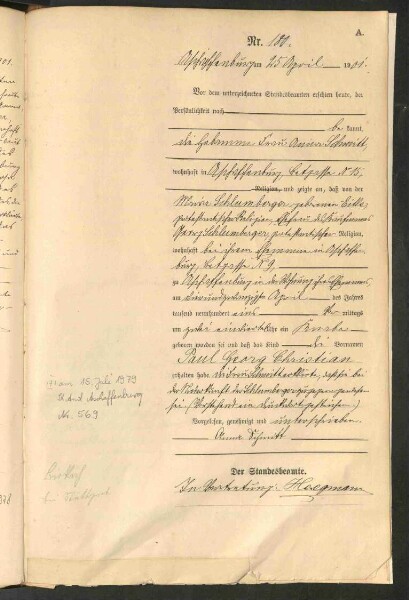 A.
Nr. 100.
Aschaffenburg am 25 April 1901.
Vor dem unterzeichneten Standesbeamten erschien heute, der
Persönlichkeit nach
be kannt,
die Hebamme Frau Anna Schmitt,
wohnhaft in Aschaffenburg, Betgasse N 15,
Religion, und zeigte an, daß von der
Maria Schlumberger, geborenen
protestantischer Religion, Ehefrau des Kaufmanns
Georg Schlumberger, protestantischer Religion,
wohnhaft bei ihrem Ehemanne in Aschaffen-
burg, Betgasse N 9,
zu Aschaffenburg in der Wohnung ihres Ehemannes,
am dreiundzwanzigsten April des Jahres
tausend neunhundert eins mittags
um Uhr ein Knabe
geboren worden sei und daß das Kind die Vornamen
Paul Georg Christian
erhalten habe.
bei der Niederkunft der Schlumberger zugegen gewesen
sei.
Vorgelesen, genehmigt und unterschrieben
Anna Schmitt
Der Standesbeamte.
In Vertretung: Haegmann
am 16. Juli 1979
St. Amt Aschaffenburg
Nr. 569